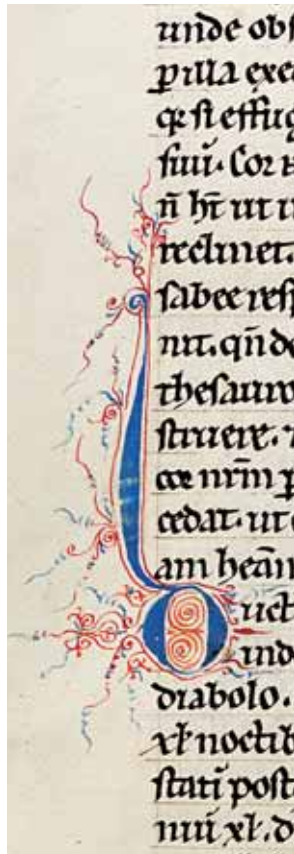 unde obſ
p illa exe
ſi effug
ſuū. Cor
n̄ h̄t ut
reclinet.
ſabee reſp
nit. qn̄ de
theſauro
ſtruere.
cor nr̄m p
cedat. ut
am
Duct
ind
diabolo.
xl noctib
ſtati poſt
xl. d